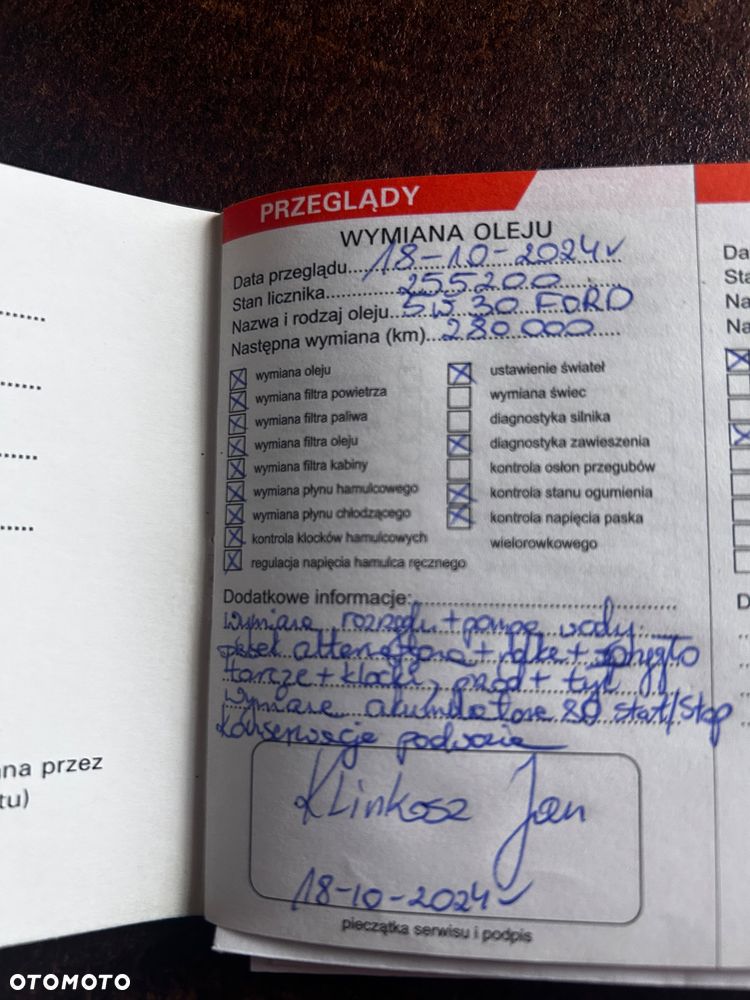 PRZEGLĄDY
WYMIANA OLEJU
Data przeglądu 18-10-2024r
Stan licznika 255200
Nazwa i rodzaj oleju 5W30 FORD
Następna wymiana (km) 280 000
wymiana oleju
wymiana filtra powietrza
wymiana filtra paliwa
wymiana filtra oleju
wymiana filtra kabiny
wymiana płynu hamulcowego
wymiana płynu chłodzącego
kontrola klocków hamulcowych
regulacja napięcia hamulca ręcznego
ustawienie świateł
wymiana świec
diagnostyka silnika
diagnostyka zawieszenia
kontrola osłon przegubów
kontrola stanu ogumienia
kontrola napięcia paska
wielorowkowego
Dodatkowe informacje:
wymiana rozrządu + pompa wody
pasek alternatora + rolka +
tarcze + klocki, przód + tył
wymiana akumulatora 80 stat/stop
Konserwacja podwozia
Klinkosz Jan
18-10-2024r
pieczątka serwisu i podpis
na przez
tu)
Da
Sta
Na
Na
D
OTOMOTO